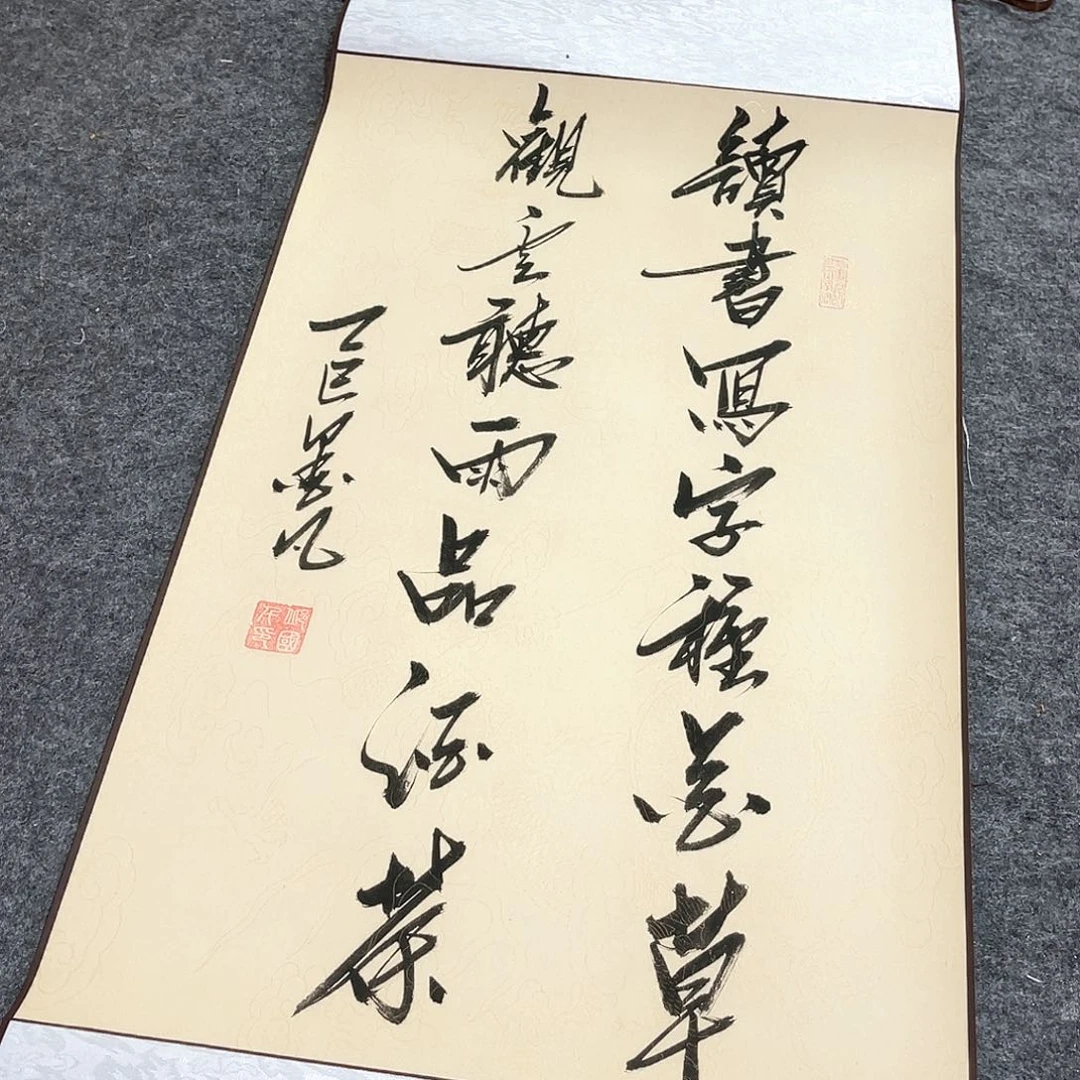 讀書寫字種花草
觀雲聽雨品酒茶
乙巳墨凡